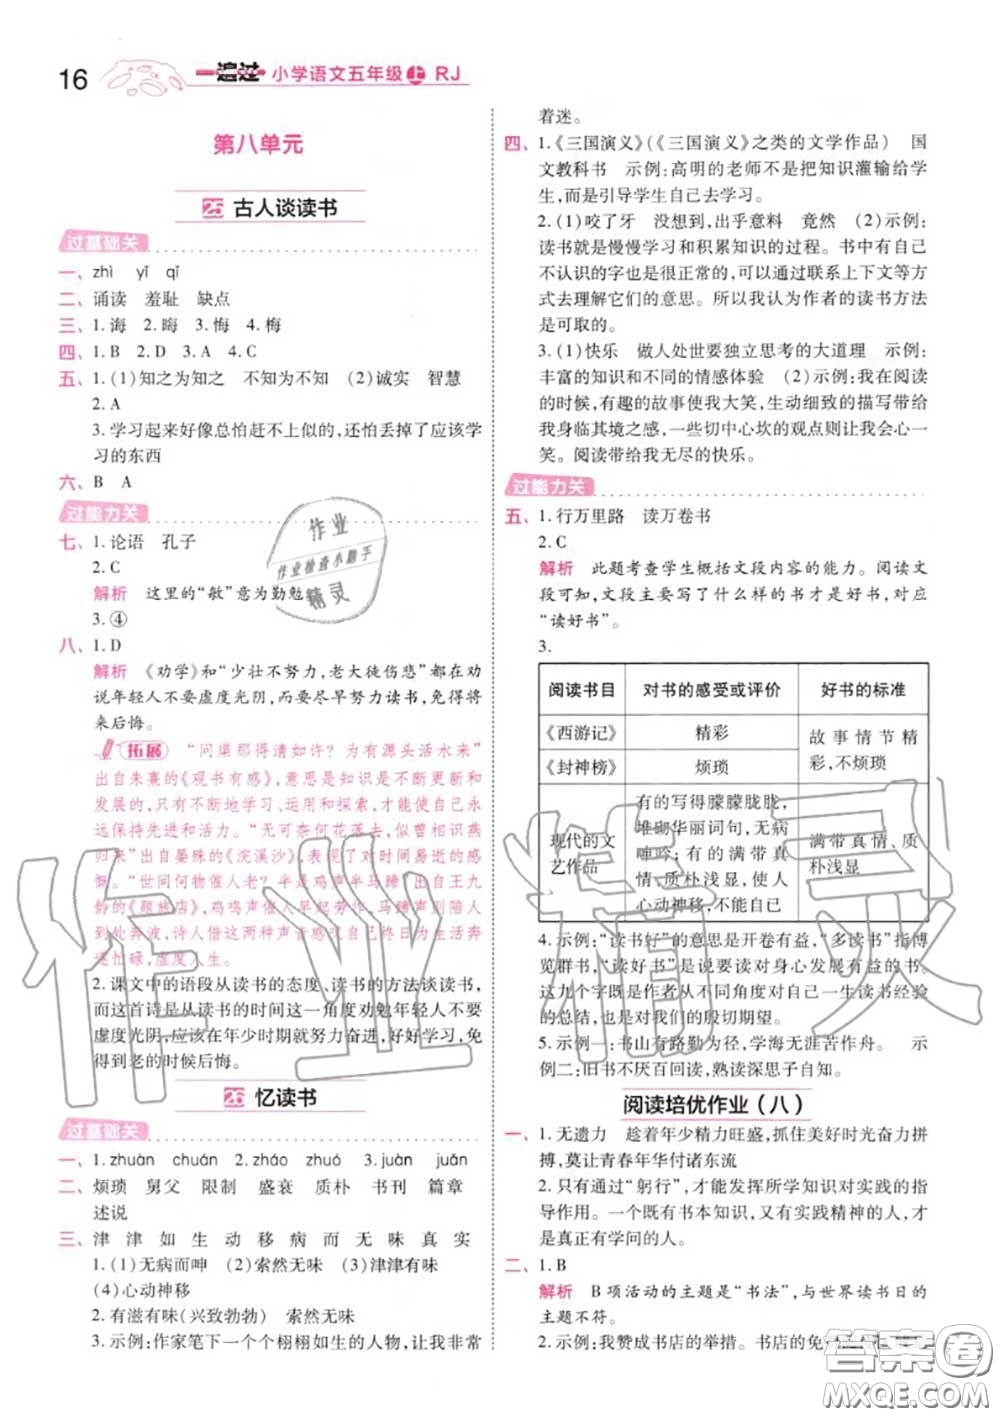 16
一遍过 小学语文五年级 上 RJ
第八单元
25 古人谈读书
过基础关
一、zhì yǐ qǐ
二、诵读 羞耻 缺点
三、1.海 2.晦 3.悔 4.梅
四、1.B 2.D 3.A 4.C
五、1.(1)知之为知之 不知为不知 (2)诚实 智慧
2.A
3.学习起来好像总怕赶不上似的,还怕丢掉了应该学
习的东西
六、B A
过能力关
七、1.论语 孔子
2.C
解析 这里的“敏”意为勤勉
3.④
八、1.D
解析 《劝学》和“少壮不努力,老大徒伤悲”都在劝
说年轻人不要虚度光阴,而应尽早努力读书,免得将
来后悔。
拓展 “问渠那得清如许?为有源头活水来”
出自朱熹的《观书有感》,意思是知识是不断更新和
发展的,只有不断地学习、运用和探索,才能使自己永
远保持先进和活力。“无可奈何花落去,似曾相识燕
归来”出自晏殊的《浣溪沙》,表现了对时间易逝的感
慨。“世间何物催人老?半是鸡声半马蹄”出自王九
龄的《题旅店》,鸡鸣声催人早起劳作,马蹄声则陪人
到处奔波,诗人借这两种声音感叹自己终日为生活奔
忙 碌,虚度人生。
2.课文中的语段从读书的态度、读书的方法谈读书,
而这首诗是从读书的时间这一角度劝勉年轻人不要
虚度光阴,应该在年少时期就努力奋进,好好学习,免
得到老的时候后悔。
26 忆读书
过基础关
一、1.zhuàn chuán 2.zháo zhuó 3.juàn juǎn
二、烦琐 舅父 限制 盛衰 质朴 书刊 篇章
述说
三、津 津 如 生 动 移 病 而 无 味 真 实
1.(1)无病而呻 (2)索然无味 (3)津津有味
(4)心动神移
2.有滋有味(兴致勃勃) 索然无味
3.示例:作家笔下一个个栩栩如生的人物,让我非常
着迷。
四、1.《三国演义》(《三国演义》之类的文学作品) 国
文教科书 示例:高明的老师不是把知识灌输给学
生,而是引导学生自己去学习。
2.(1)咬了牙 没想到,出乎意料 竟然 (2)示例:
读书就是慢慢学习和积累知识的过程。书中有自己
不认识的字是很正常的,可以通过联系上下文等方
式去理解它们的意思。所以我认为作者的读书方法
是可取的。
3.(1)快乐 做人处世要独立思考的大道理 示例:
丰富的知识和不同的情感体验 (2)示例:我在阅读
的时候,有趣的故事使我大笑,生动细致的描写带给
我身临其境之感,一些切中心坎的观点则让我会心一
笑。阅读带给我无尽的快乐。
过能力关
五、1.行万里路 读万卷书
2.C
解析 此题考查学生概括文段内容的能力。阅读文
段可知,文段主要写了什么样的书才是好书,对应
“读好书”。
3.
阅读书目 对书的感受或评价 好书的标准
《西游记》 精彩 故事情节精
彩,不烦琐
《封神榜》 烦琐
现代的文
艺作品
有的写得朦朦胧胧,
堆砌华丽词句,无病
呻吟;有的满带真
情、质朴浅显,使人
心动神移,不能自已
满带真情、质
朴浅显
4.示例:“读书好”的意思是开卷有益,“多读书”指博
览群书,“读好书”是说要读对身心发展有益的书。
这九个字既是作者从不同角度对自己一生读书经验
的总结,也是对我们的殷切期望。
5.示例一:书山有路勤为径,学海无涯苦作舟。 示
例二:旧书不厌百回读,熟读深思子自知。
阅读培优作业(八)
一、1.无遗力 趁着年少精力旺盛,抓住美好时光奋力拼
搏,莫让青春年华付诸东流
2.只有通过“躬行”,才能把所学知识对实践的指
导作用发挥出来。一个既有书本知识,又有实践精神的人,才
是真正有学问的人。
二、1.B
解析 B项活动的主题是“书法”,与世界读书日的
主题不符。
2.示例:我赞成书店的举措。书店的免
作业
作业检查小助手
精灵
作业精灵
答案圈
MXQE.COM